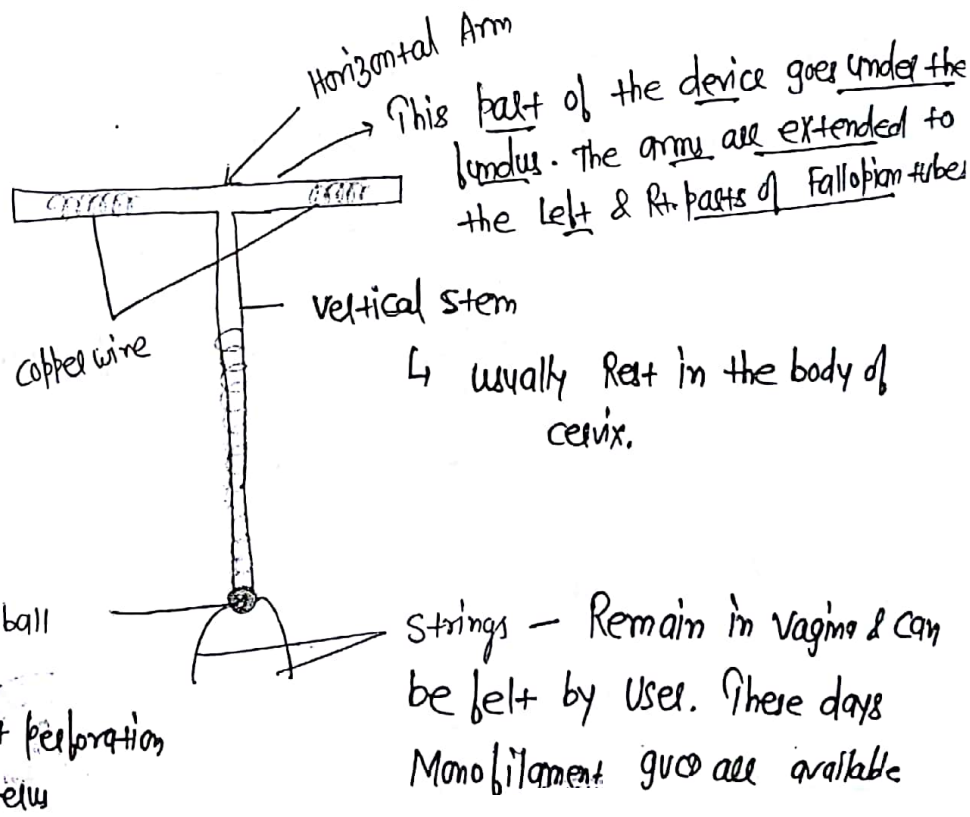 Horizontal Arm
This part of the device goes under the
fundus. The arms are extended to
the Left & Rt. parts of Fallopian tubes
copper wire
vertical stem
↳ usually Rest in the body of
cervix.
ball
Strings – Remain in vagina & can
be felt by User. These days
Monofilament are available
perforation